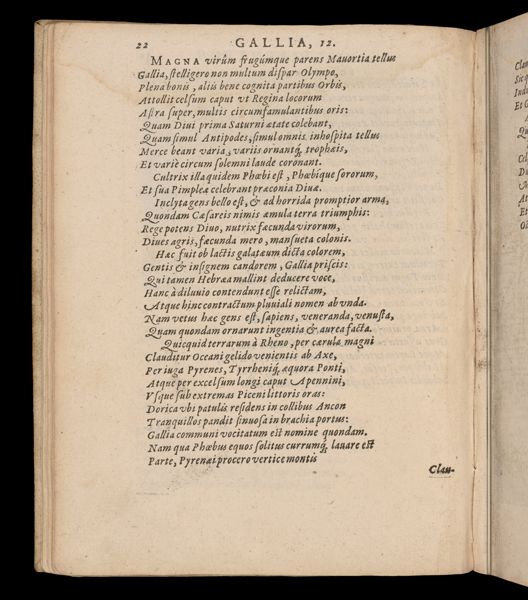 22 GALLIA, 12.
MAGNA virûm frugúmque parens Mavortia tellus
Gallia, stelligero non multum dispar Olympo,
Plena bonis, aliis bene cognita partibus Orbis,
Attollit celsum caput vt Regina locorum
Astra super, multis circumfamulantibus oris:
Quam Diui prima Saturni ætate colebant,
Quam simul Antipodes, simul omnis inhospita tellus
Merce beant varia, variis ornantq́; trophæis,
Et variè circum solemni laude coronant.
Cultrix illa quidem Phœbi est, Phœbique sororum,
Et sua Pimpleæ celebrant præconia Diuæ.
Inclyta gens bello est, & ad horrida promptior arma,
Quondam Cæsareis nimis æmula terra triumphis:
Rege potens Diuo, nutrix fæcunda virorum,
Diues agris, fæcunda mero, mansueta colonis.
Hæc fuit ob lactis galatæum dicta colorem,
Gentis & insignem candorem, Gallia priscis:
Qui tamen Hebræa mallint deducere voce,
Hanc à diluuio contendunt esse relictam,
Atque hinc contractum pluuiali nomen ab vnda.
Nam vetus hæc gens est, sapiens, veneranda, venusta,
Quam quondam ornarunt ingentia & aurea facta.
Quicquid terrarum à Rheno, per cærula magni
Clauditur Oceani gelido venientis ab Axe,
Per iuga Pyrenes, Tyrrheniq́; æquora Ponti,
Atque per excelsum longi caput Apennini,
Vsque sub extremas Piceni littoris oras:
Dorica vbi patulis residens in collibus Ancon
Tranquillos pandit sinuosa in brachia portus:
Gallia communi vocitatum est nomine quondam.
Nam qua Phœbus equos solitus currumq́; lauare est
Parte, Pyrenæi procero vertice montis
Clau-